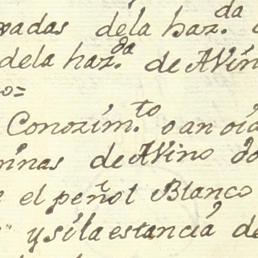 vadas dela haz.da
dela haz.da de Aviñ
o=
Conozim.to o an oid
minas de Avino do
el peñol Blanco
y si la estancia de